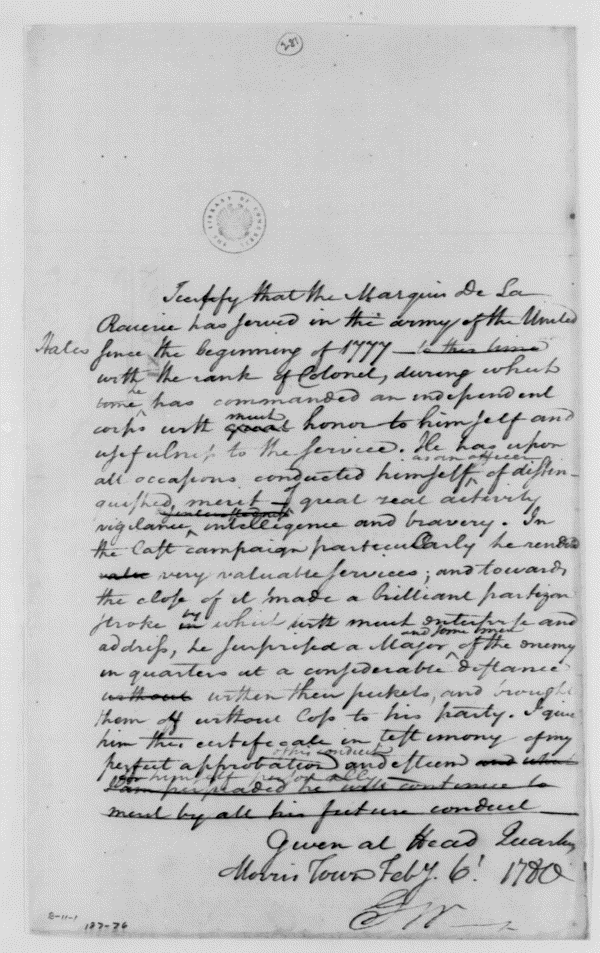 281
THE LIBRARY OF CONGRESS
I certify that the Marquis De La
Rouerie has served in the army of the United
States since the beginning of 1777 to this time
with the rank of Colonel, during which
time he has commanded an independent
corps with great much honor to himself and
usefulness to the service. He has upon
all occasions conducted himself as an officer of distin-
guished merit of great zeal activity
vigilance, intelligence and bravery. In
the last campaign particularly he rendered
very valuable services; and towards
the close of it made a brilliant partizan
stroke in by which with much enterprise and
address, he surprised a Major and some men of the enemy
in quarters at a considerable distance
without within their pickets, and brought
them off without loss to his party. I give
him this certificate in testimony of my
perfect approbation of his conduct and esteem and which
for himself personally
I am persuaded he will continue to
merit by all his future conduct
Given at Head Quarters
Morris Town Feby. 6t. 1780
GW
8-11-1
187-76